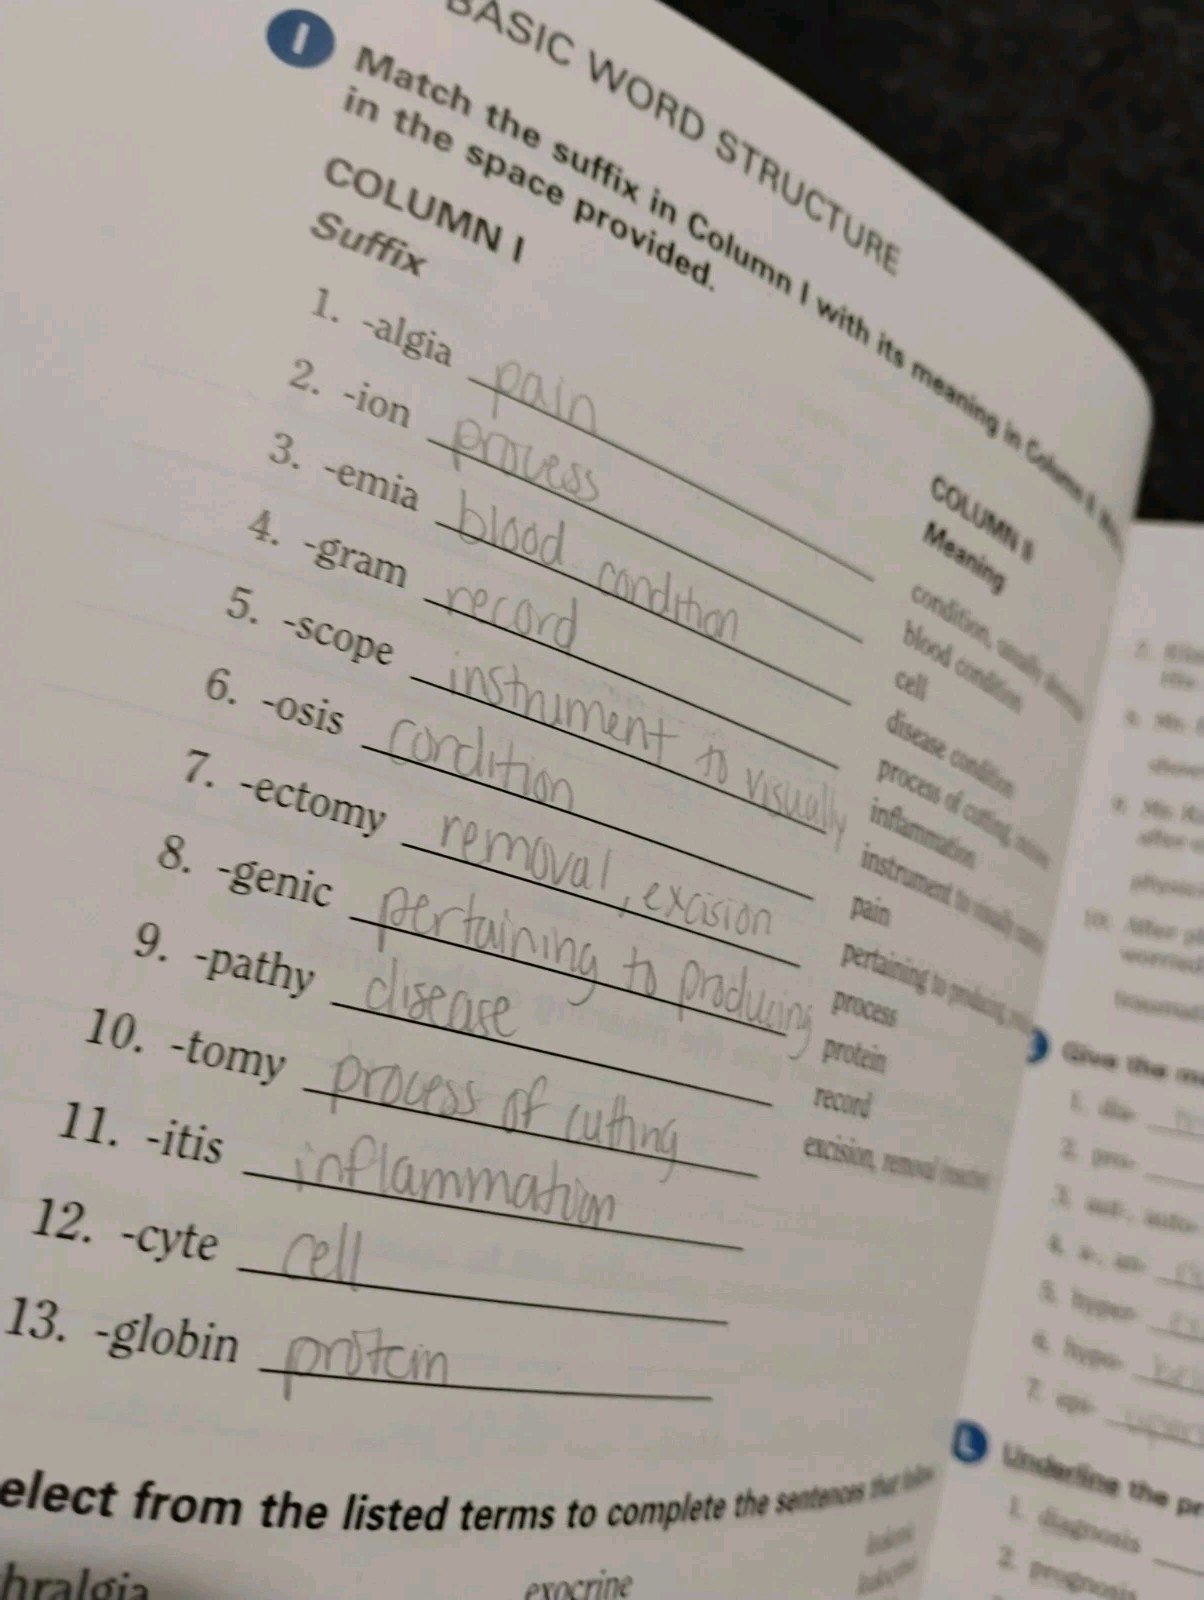 BASIC WORD STRUCTURE
I Match the suffix in Column I with its meaning in Column II.
in the space provided.
COLUMN I
Suffix
1. -algia pain
2. -ion process
3. -emia blood condition
4. -gram record
5. -scope instrument to visually
6. -osis condition
7. -ectomy removal, excision
8. -genic pertaining to producing
9. -pathy disease
10. -tomy process of cutting
11. -itis inflammation
12. -cyte cell
13. -globin protein
COLUMN II
Meaning
condition, usually
blood condition
cell
disease condition
process of cutting,
inflammation
instrument to visually
pain
pertaining to producing
process
protein
record
excision, removal
elect from the listed terms to complete the sentences that follow
hralgia
exocrine
Give the
1. dia-
2. pro-
3. aut-, auto-
4. a-, an-
5. hyper-
6. hypo-
7. epi-
L Underline the
1. diagnosis
2. prognosis